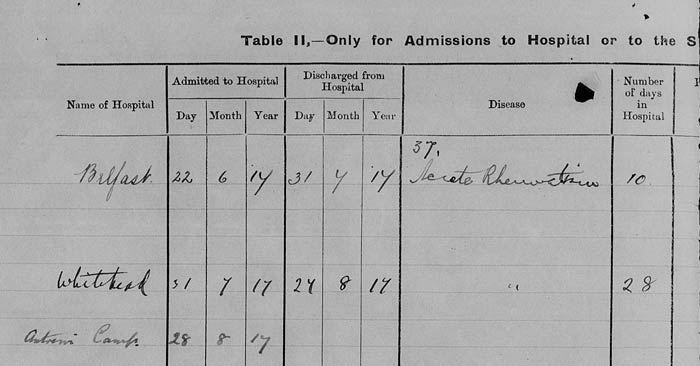 Table II,—Only for Admissions to Hospital or to the S
Name of Hospital Admitted to Hospital Discharged from Hospital Disease Number of days in Hospital
Day Month Year Day Month Year
37.
Belfast. 22 6 17 31 7 17 Acute Rheumatism 10
Whitehead 31 7 17 27 8 17 " 28
Antrim Camp. 28 8 17